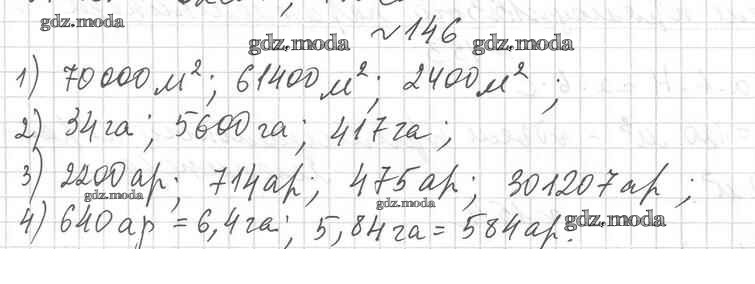 gdz.moda
№146
gdz.moda gdz.moda
1) 70000 м²; 61400 м²; 2400 м²;
2) 34 га; 5600 га; 417 га;
3) 2200 ар; 714 ар; 475 ар; 301207 ар;
gdz.moda gdz.moda
4) 640 ар = 6,4 га; 5,84 га = 584 ар.
gdz.moda